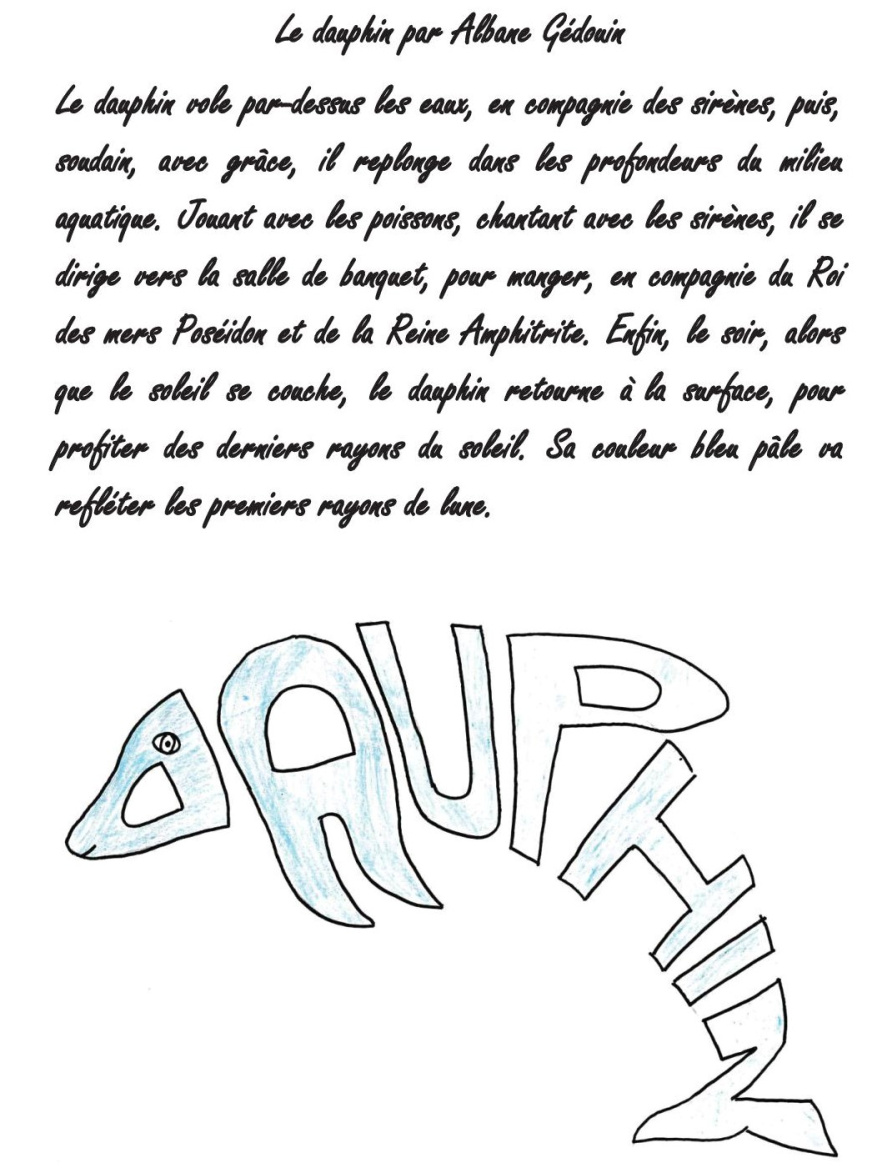 Le dauphin par Albane Gédouin
Le dauphin vole par-dessus les eaux, en compagnie des sirènes, puis,
soudain, avec grâce, il replonge dans les profondeurs du milieu
aquatique. Jouant avec les poissons, chantant avec les sirènes, il se
dirige vers la salle de banquet, pour manger, en compagnie du Roi
des mers Poséidon et de la Reine Amphitrite. Enfin, le soir, alors
que le soleil se couche, le dauphin retourne à la surface, pour
profiter des derniers rayons du soleil. Sa couleur bleu pâle va
refléter les premiers rayons de lune.
DAUPHIN